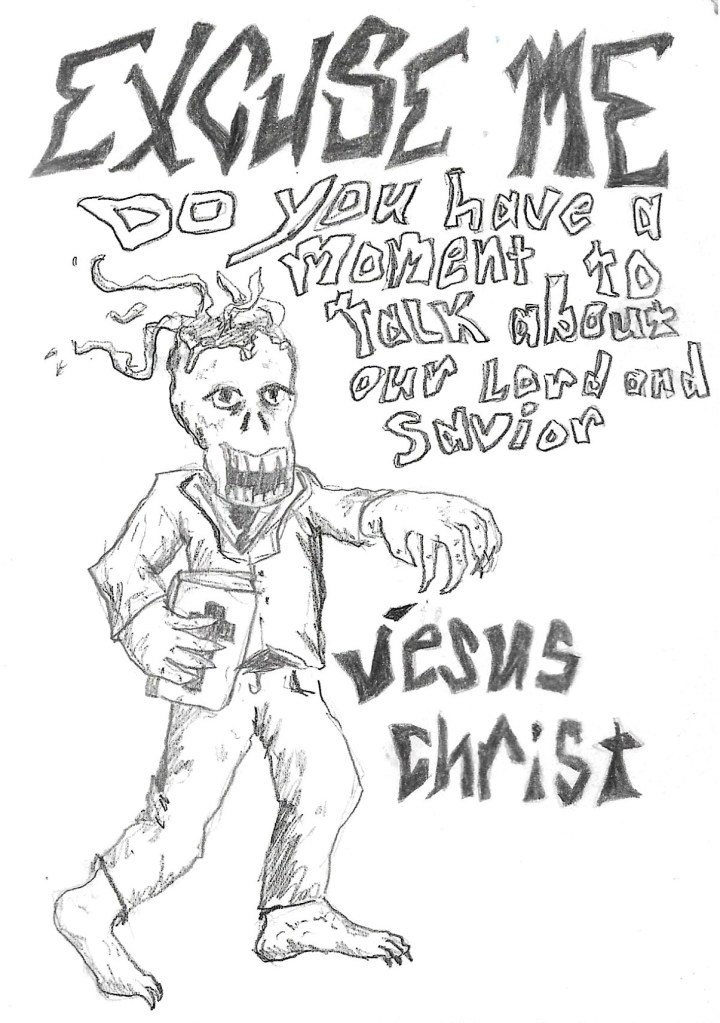 EXCUSE ME
DO YOU have a
MOMENT TO
TALK about
our Lord and
Savior
Jesus
Christ